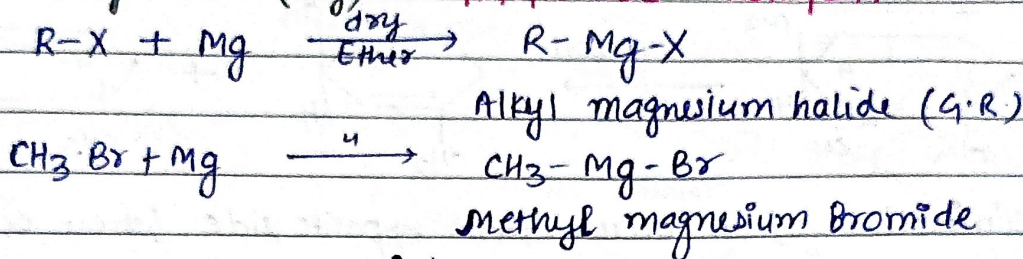 dry
R-X + Mg → R-Mg-X
Ether
Alkyl magnesium halide (G.R)
CH3Br + Mg —"→ CH3-Mg-Br
Methyl magnesium Bromide